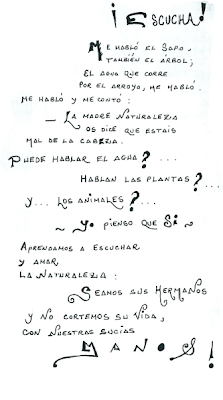 ¡ESCUCHA!
ME HABLÓ EL SAPO,
TAMBIÉN EL ÁRBOL;
EL AGUA QUE CORRE
POR EL ARROYO, ME HABLÓ.
ME HABLÓ Y ME CONTÓ:
— LA MADRE NATURALEZA
OS DICE QUE ESTAIS
MAL DE LA CABEZA.
PUEDE HABLAR EL AGUA?....
HABLAN LAS PLANTAS?...
Y... LOS ANIMALES?...
~ YO PIENSO QUE SI ~
APRENDAMOS A ESCUCHAR
Y AMAR
LA NATURALEZA:
SEAMOS SUS HERMANOS
Y NO CORTEMOS SU VIDA,
CON NUESTRAS SUCIAS
MANOS!